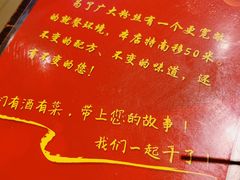 为了广大粉丝有一个更宽敞
的就餐环境，本店特南移50米，
不变的配方、不变的味道，还
有不变的您！
们有酒有菜，带上您的故事！
我们一起干了！